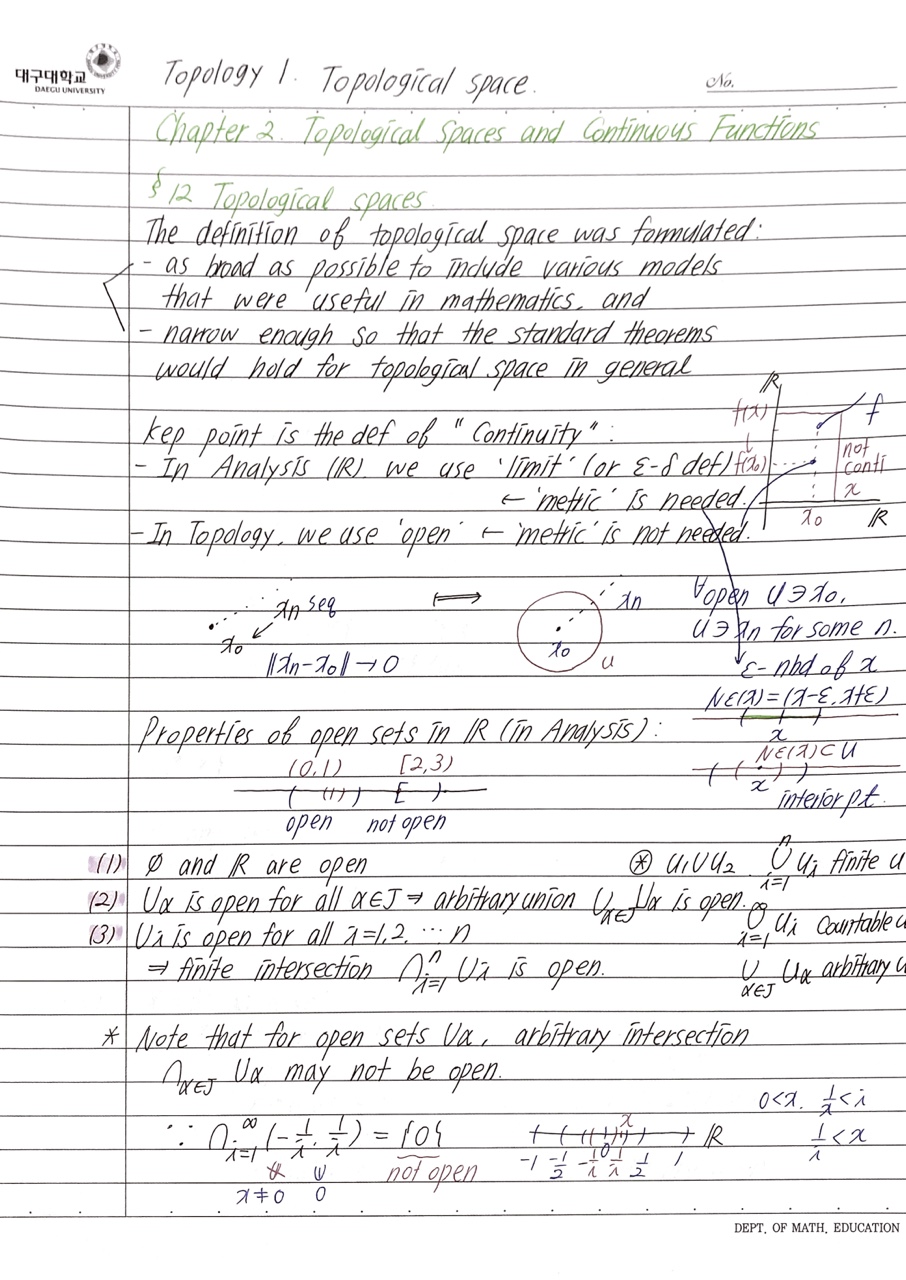 대구대학교
DAEGU UNIVERSITY
Topology 1. Topological space.
No.
Chapter 2. Topological Spaces and Continuous Functions
§12 Topological spaces.
The definition of topological space was formulated:
- as broad as possible to include various models
that were useful in mathematics, and
- narrow enough so that the standard theorems
would hold for topological space in general
kep point is the def of "Continuity":
- In Analysis (ℝ). we use 'limit' (or ε-δ def)
← 'metric' is needed.
- In Topology, we use 'open' ← 'metric' is not needed.
ℝ
f(x) f
↓
f(x₀)
not
conti
x
x₀ ℝ
xₙ seq ⟷ xₙ
x₀ x₀
‖xₙ-x₀‖→0 u
∀open U∋x₀,
U∋xₙ for some n.
ε-nbd of x
Nε(x)=(x-ε, x+ε)
x
Nε(x)⊂U
x
interior pt.
Properties of open sets in ℝ (in Analysis):
(0,1) [2,3)
open not open
(1) ∅ and ℝ are open
(2) Uα is open for all α∈J ⇒ arbitrary union ⋃α∈J Uα is open.
(3) Ui is open for all i=1,2, ⋯ n
⇒ finite intersection ⋂ⁿi=1 Ui is open.
⊛ U₁∪U₂ ⋃ⁿi=1 Ui finite u
⋃^∞i=1 Ui Countable u
⋃α∈J Uα arbitrary u
* Note that for open sets Uα, arbitrary intersection
⋂α∈J Uα may not be open.
∵ ⋂^∞i=1 (-1/i, 1/i) = {0}
not open
x≠0 0
x
ℝ
-1 -1/2 -1/i 0 1/i 1/2 1
0<x. 1/x<i
1/i<x
DEPT. OF MATH. EDUCATION